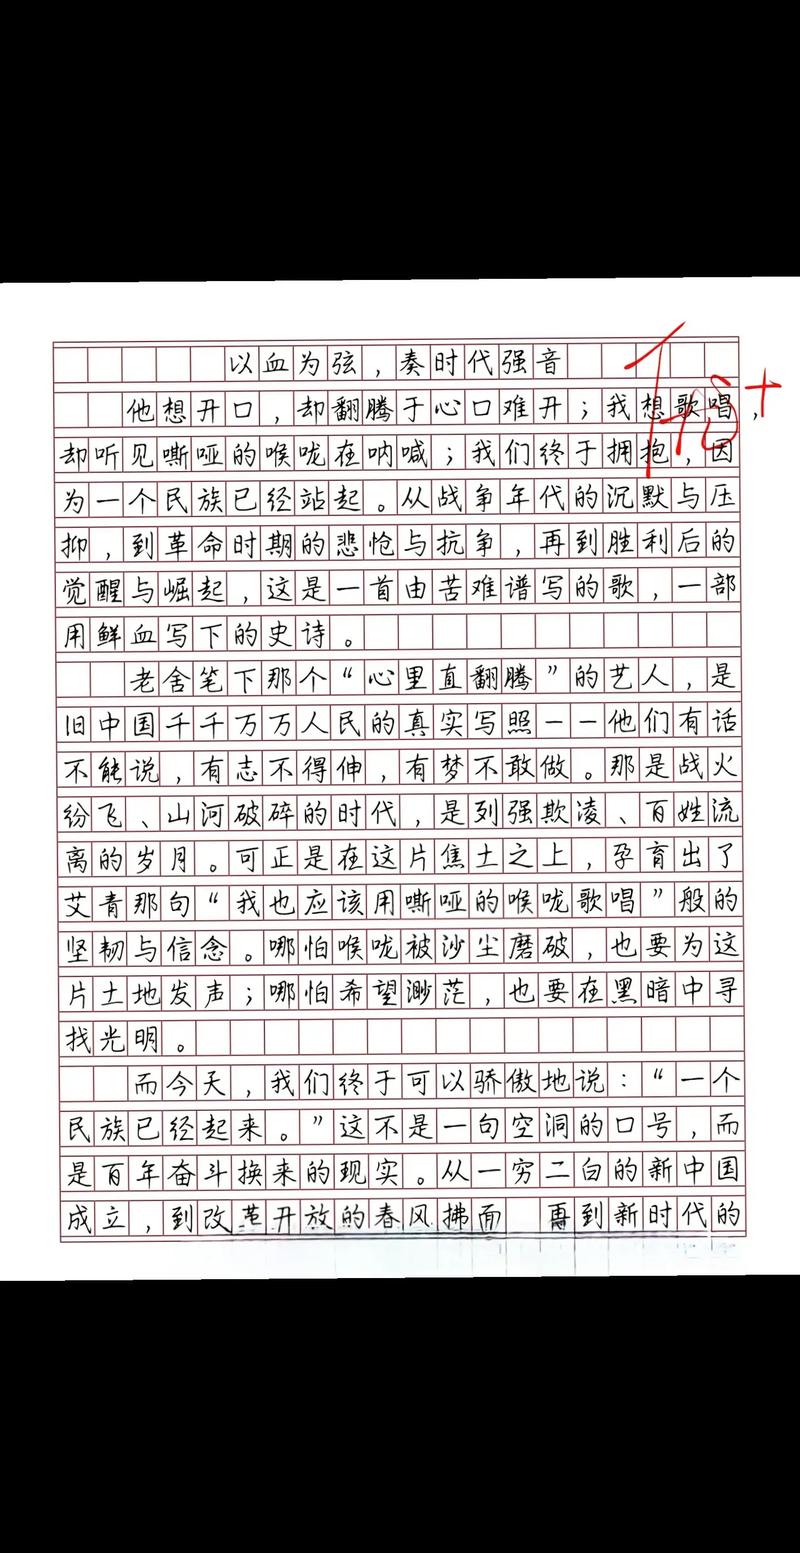 以血为弦，奏时代强音
他想开口，却翻腾于心口难开；我想歌唱，
却听见嘶哑的喉咙在呐喊；我们终于拥抱，因
为一个民族已经站起。从战争年代的沉默与压
抑，到革命时期的悲怆与抗争，再到胜利后的
觉醒与崛起，这是一首由苦难谱写的歌，一部
用鲜血写下的史诗。
老舍笔下那个“心里直翻腾”的艺人，是
旧中国千千万万人民的真实写照——他们有话
不能说，有志不得伸，有梦不敢做。那是战火
纷飞、山河破碎的时代，是列强欺凌、百姓流
离的岁月。可正是在这片焦土之上，孕育出了
艾青那句“我也应该用嘶哑的喉咙歌唱”般的
坚韧与信念。哪怕喉咙被沙尘磨破，也要为这
片土地发声；哪怕希望渺茫，也要在黑暗中寻
找光明。
而今天，我们终于可以骄傲地说：“一个
民族已经起来。”这不是一句空洞的口号，而
是百年奋斗换来的现实。从一穷二白的新中国
成立，到改革开放的春风拂面 再到新时代的